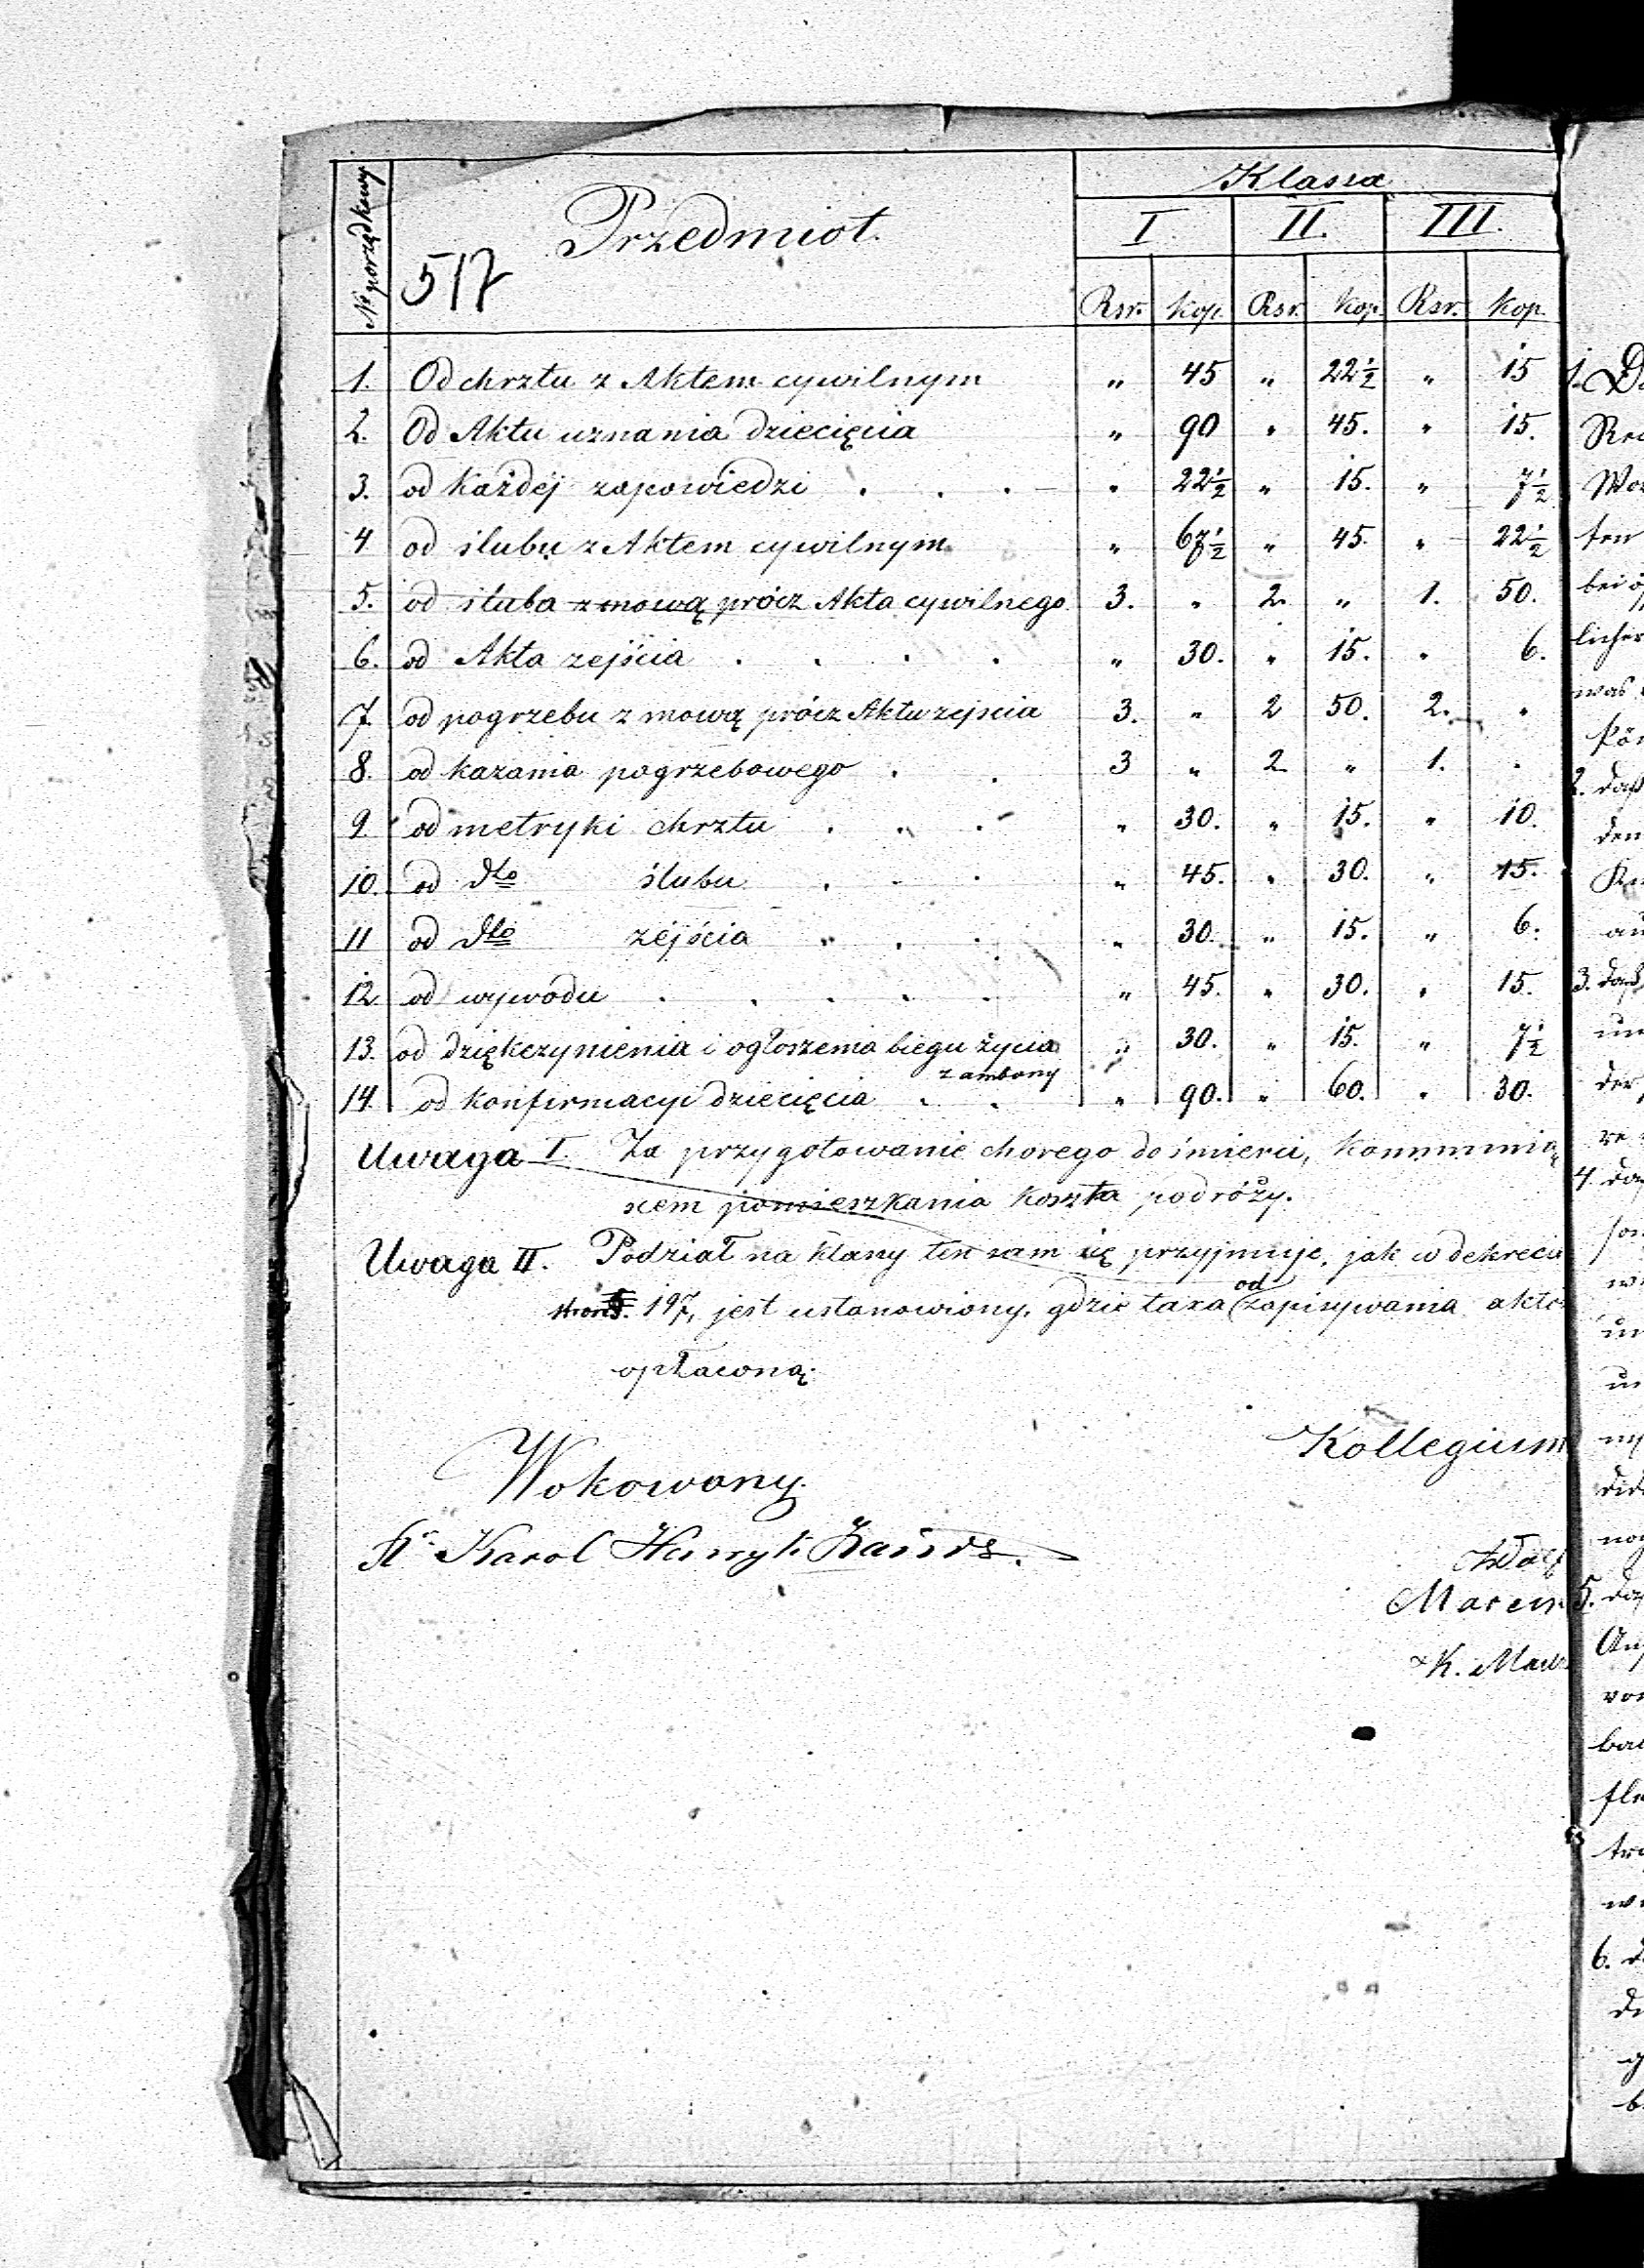 Klassa
№ porządkowy Przedmiot. I. II. III.
517
Rsr. Kop. Rsr. Kop. Rsr. Kop.
1. Od chrztu z Aktem cywilnym " 45 " 22½ " 15
2. Od Aktu uznania dziecięcia " 90 " 45. " 15.
3. od każdej zapowiedzi . . . " 22½ " 15. " 7½
4 od ślubu z Aktem cywilnym " 67½ " 45. " 22½
5. od ślubu z mową prócz Akta cywilnego 3. " 2. " 1. 50.
6. od Akta zejścia . . . . " 30. " 15. " 6.
7. od pogrzebu z mową prócz Aktu zejścia 3. " 2 50. 2. "
8. od kazania pogrzebowego . . 3 " 2. " 1. "
9. od metryki chrztu . . . " 30. " 15. " 10.
10. od dto ślubu . . . " 45. " 30. " 15.
11 od dto zejścia . . . " 30. " 15. " 6.
12 od wywodu . . . . . " 45. " 30. " 15.
13. od dziękczynienia i ogłoszenia biegu życia " 30. " 15. " 7½
z ambony
14. od konfirmacyi dziecięcia . . " 90. " 60. " 30.
Uwaga I. Za przygotowanie chorego do śmierci, kommunią
scem pomieszkania koszta podróży.
Uwaga II. Podział na klassy ten sam się przyjmuje, jak w dekrecie
197, jest ustanowiony, gdzie taxa od zapisywania akto
opłaconą.
Kollegium
Wokowany.
Karol Henryk
Adolf
Marcin
K.